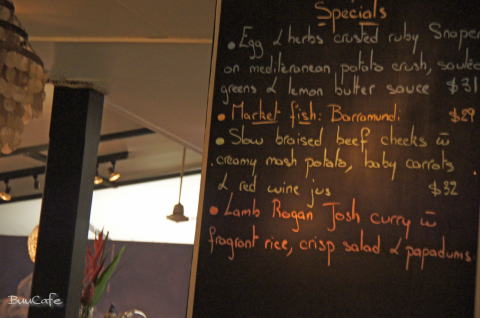 Specials
• Egg & herbs crusted ruby Snaper
on mediteranean potato crush, sauted
greens & lemon butter sauce $31
• Market fish: Barramundi $29
• Slow braised beef cheeks w
creamy mash potato, baby carrots
& red wine jus $32
• Lamb Rogan Josh curry w
fragrant rice, crisp salad & papadums.
BuuCafe